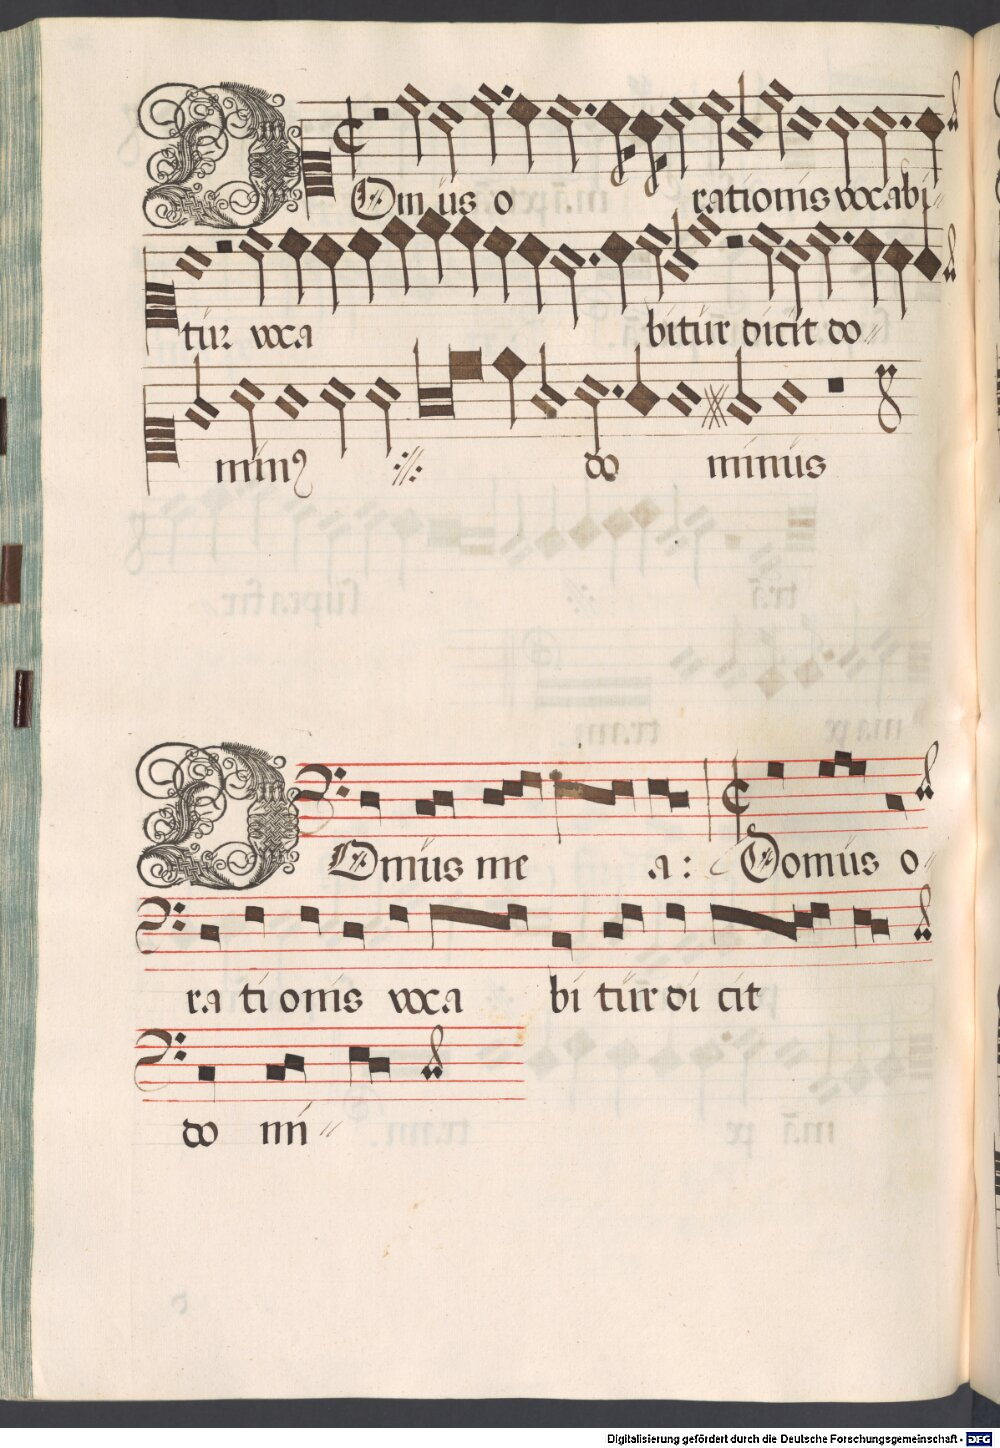 Domus orationis vocabi
tur voca bitur dicit do
minꝰ do minus
Domus me a: Domus o
rationis voca bitur dicit
do mi
Digitalisierung gefördert durch die Deutsche Forschungsgemeinschaft - DFG